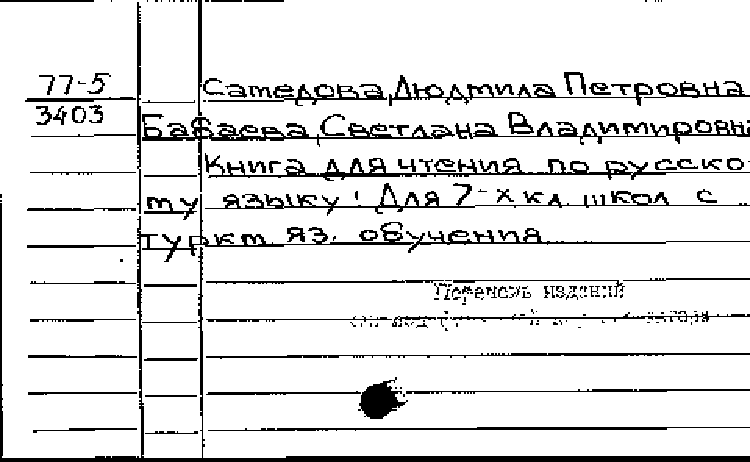 77-5
3403
Сатедова, Людмила Петровна
Бабаева, Светлана Владимировн
Книга для чтения по русско
му языку: Для 7-х кл. школ с
туркм. яз. обучения
Перечень изданий